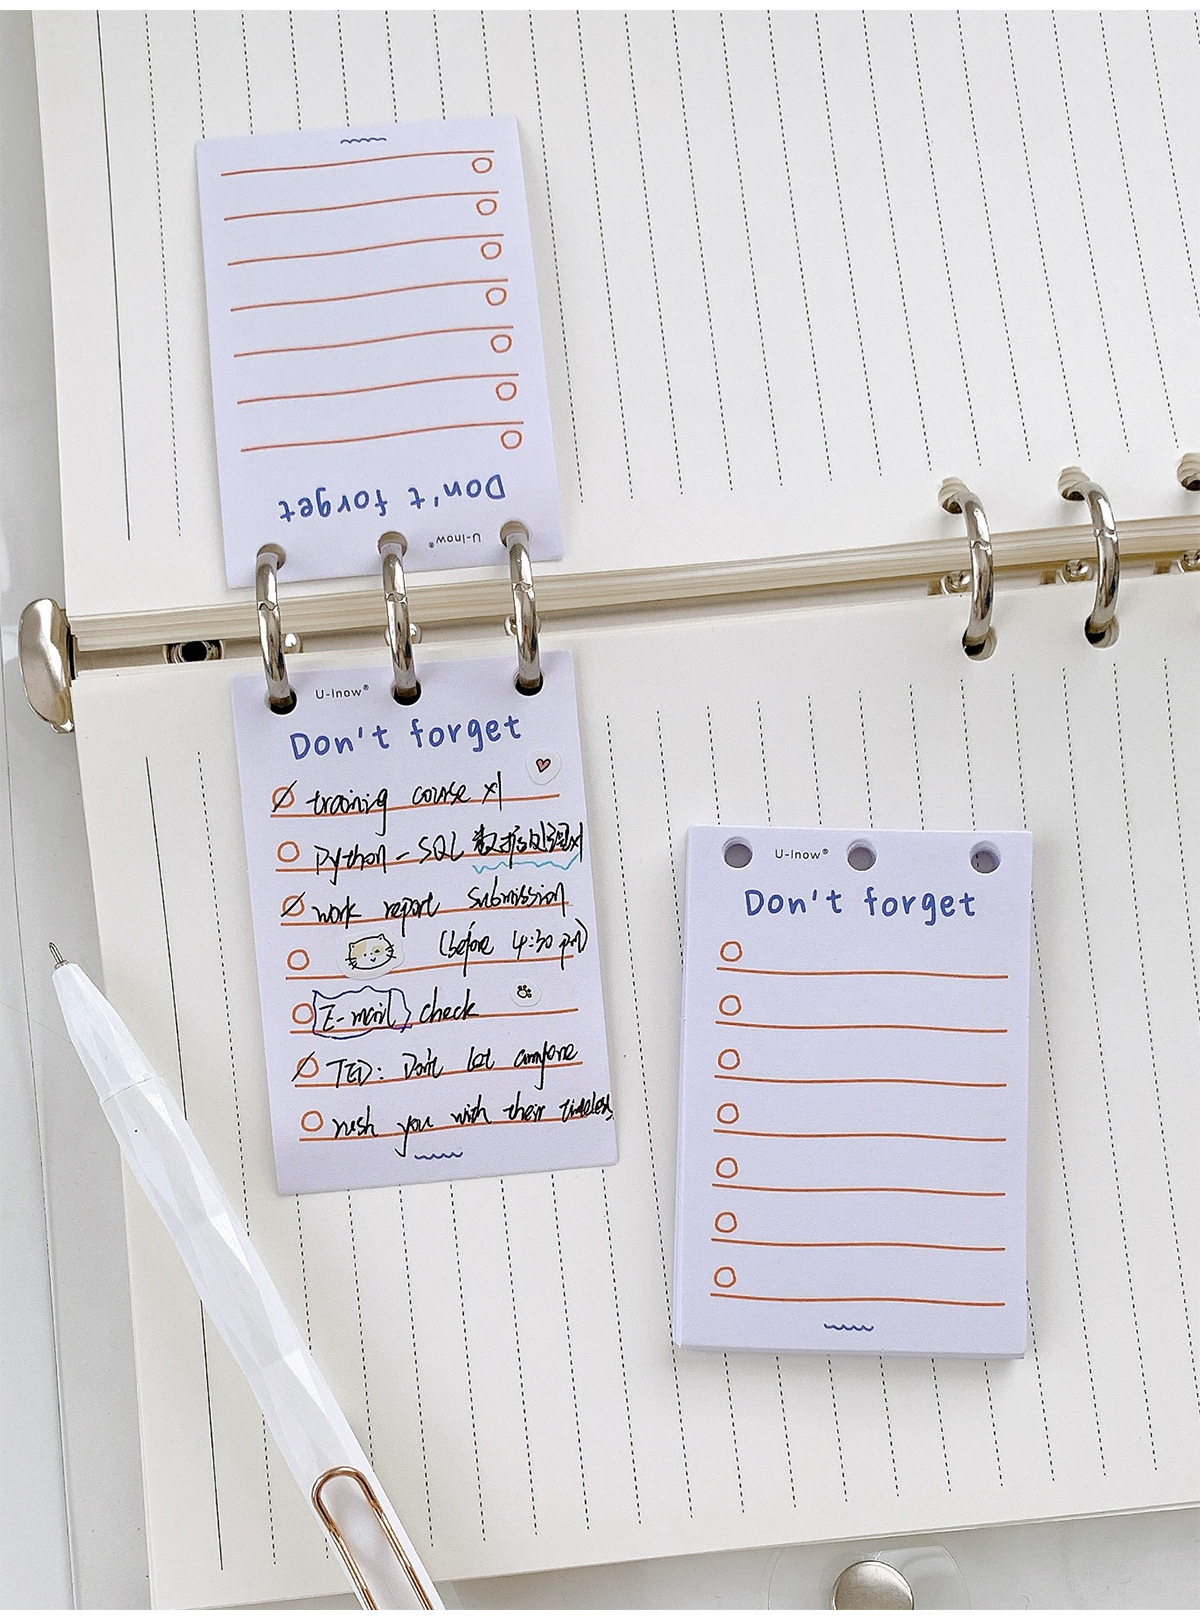 Don't forget
U-Inow®
U-Inow®
Don't forget
training course x1
Python - SQL 数据处理x1
work report submission
(before 4:30 pm)
E-mail check
TED: Don't let anyone
rush you with their timelines
U-Inow®
Don't forget